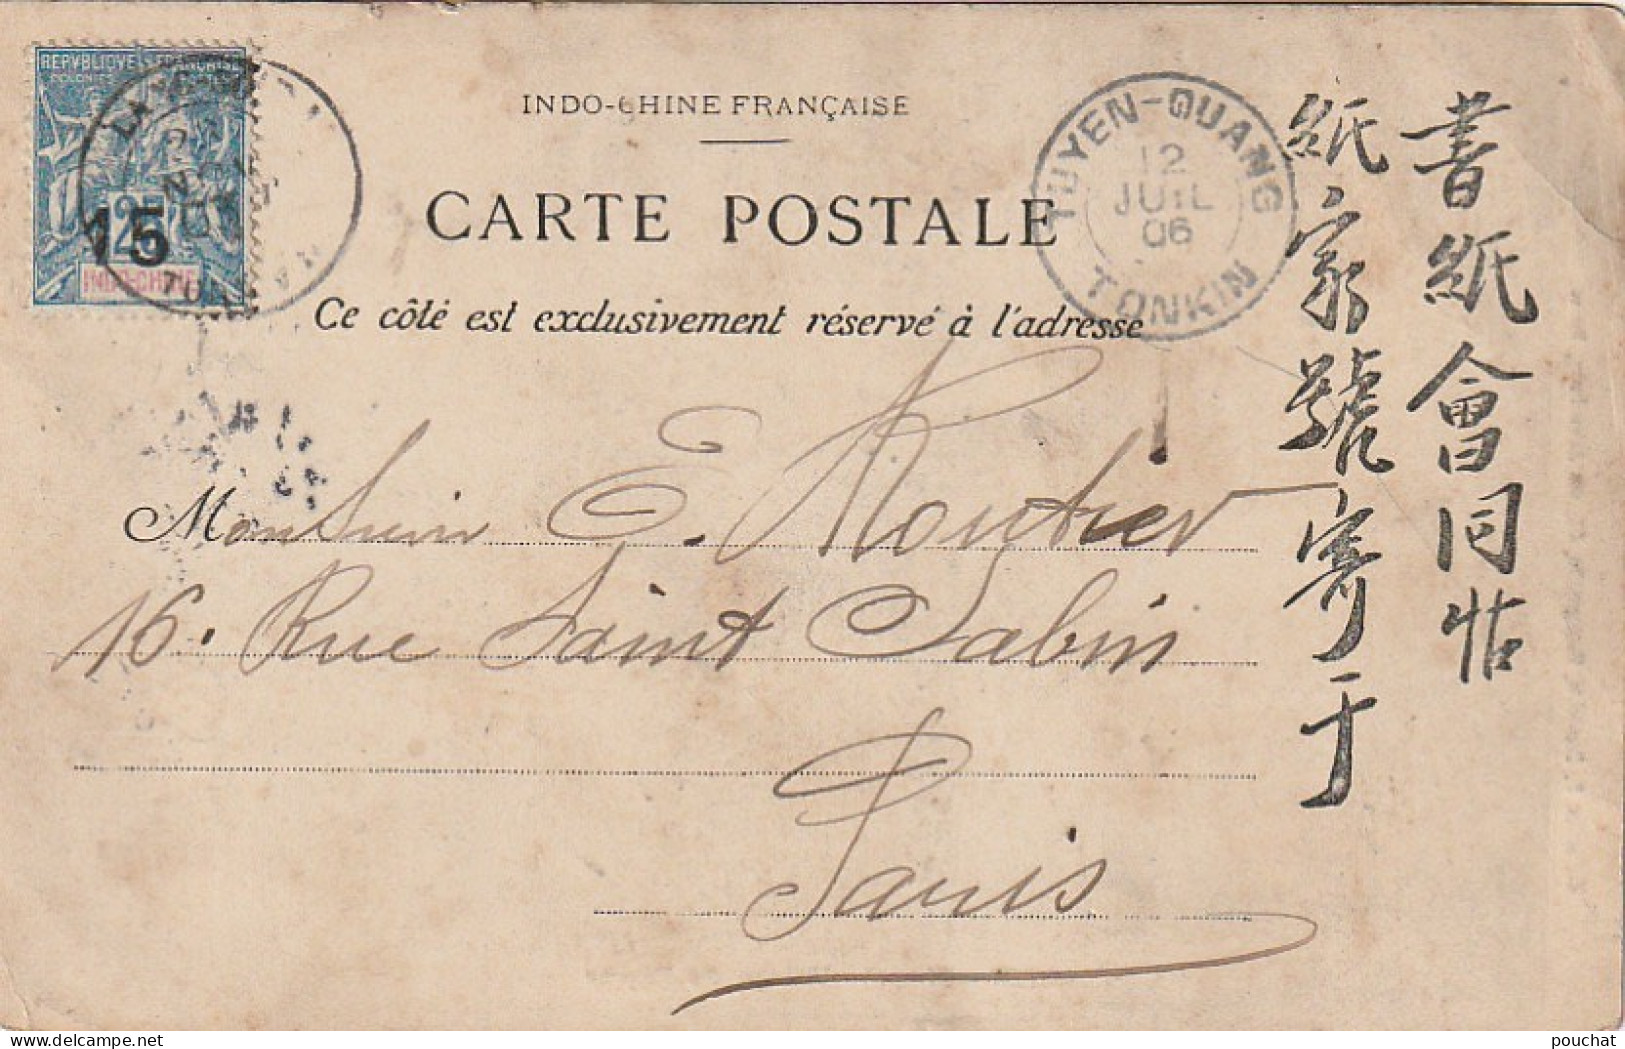 REPVBLIQVE FRANÇAISE
COLONIES POSTES
15
INDO-CHINE
INDO-CHINE FRANÇAISE
TUYEN-QUANG
12
JUIL
06
TONKIN
CARTE POSTALE
Ce côté est exclusivement réservé à l'adresse
書紙會同帖
紙家號寄于
Monsieur E. Routier
16. Rue Saint Sabin
Paris
pouchat